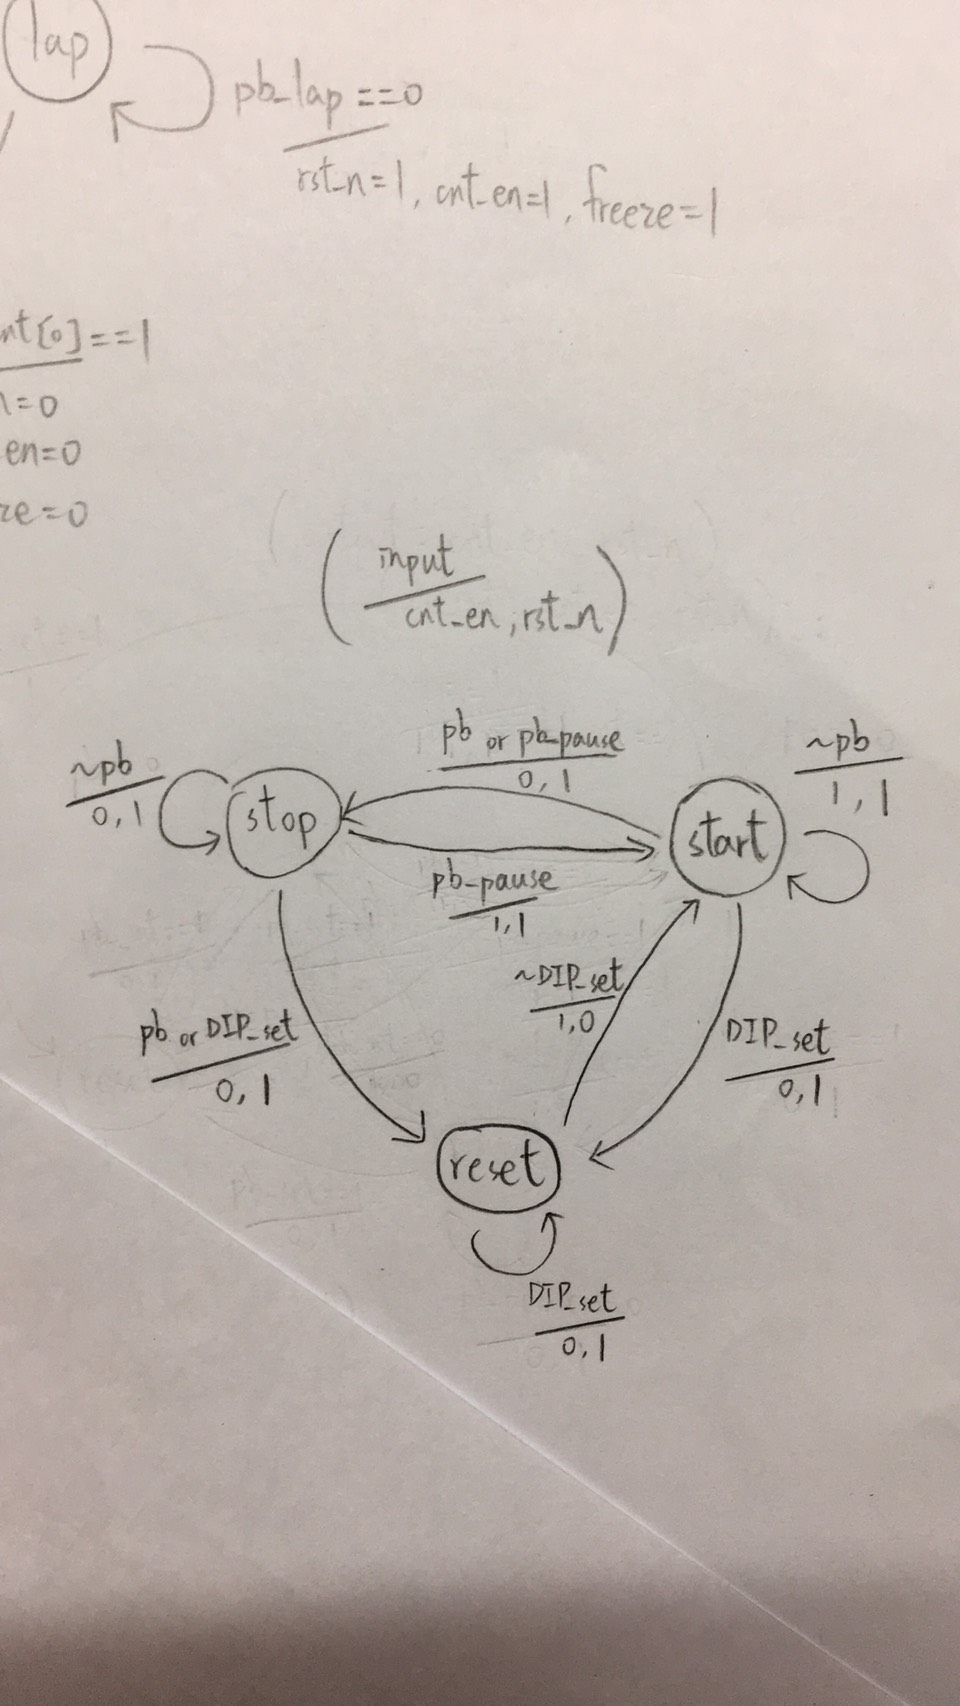 lap
pb_lap ==0
rst_n=1, cnt_en=1, freeze=1
nt[0]==1
=0
en=0
ze=0
input
cnt_en, rst_n
~pb
0, 1
stop
pb or pb_pause
0, 1
start
~pb
1, 1
pb_pause
1, 1
pb or DIP_set
0, 1
~DIP_set
1, 0
DIP_set
0, 1
reset
DIP_set
0, 1